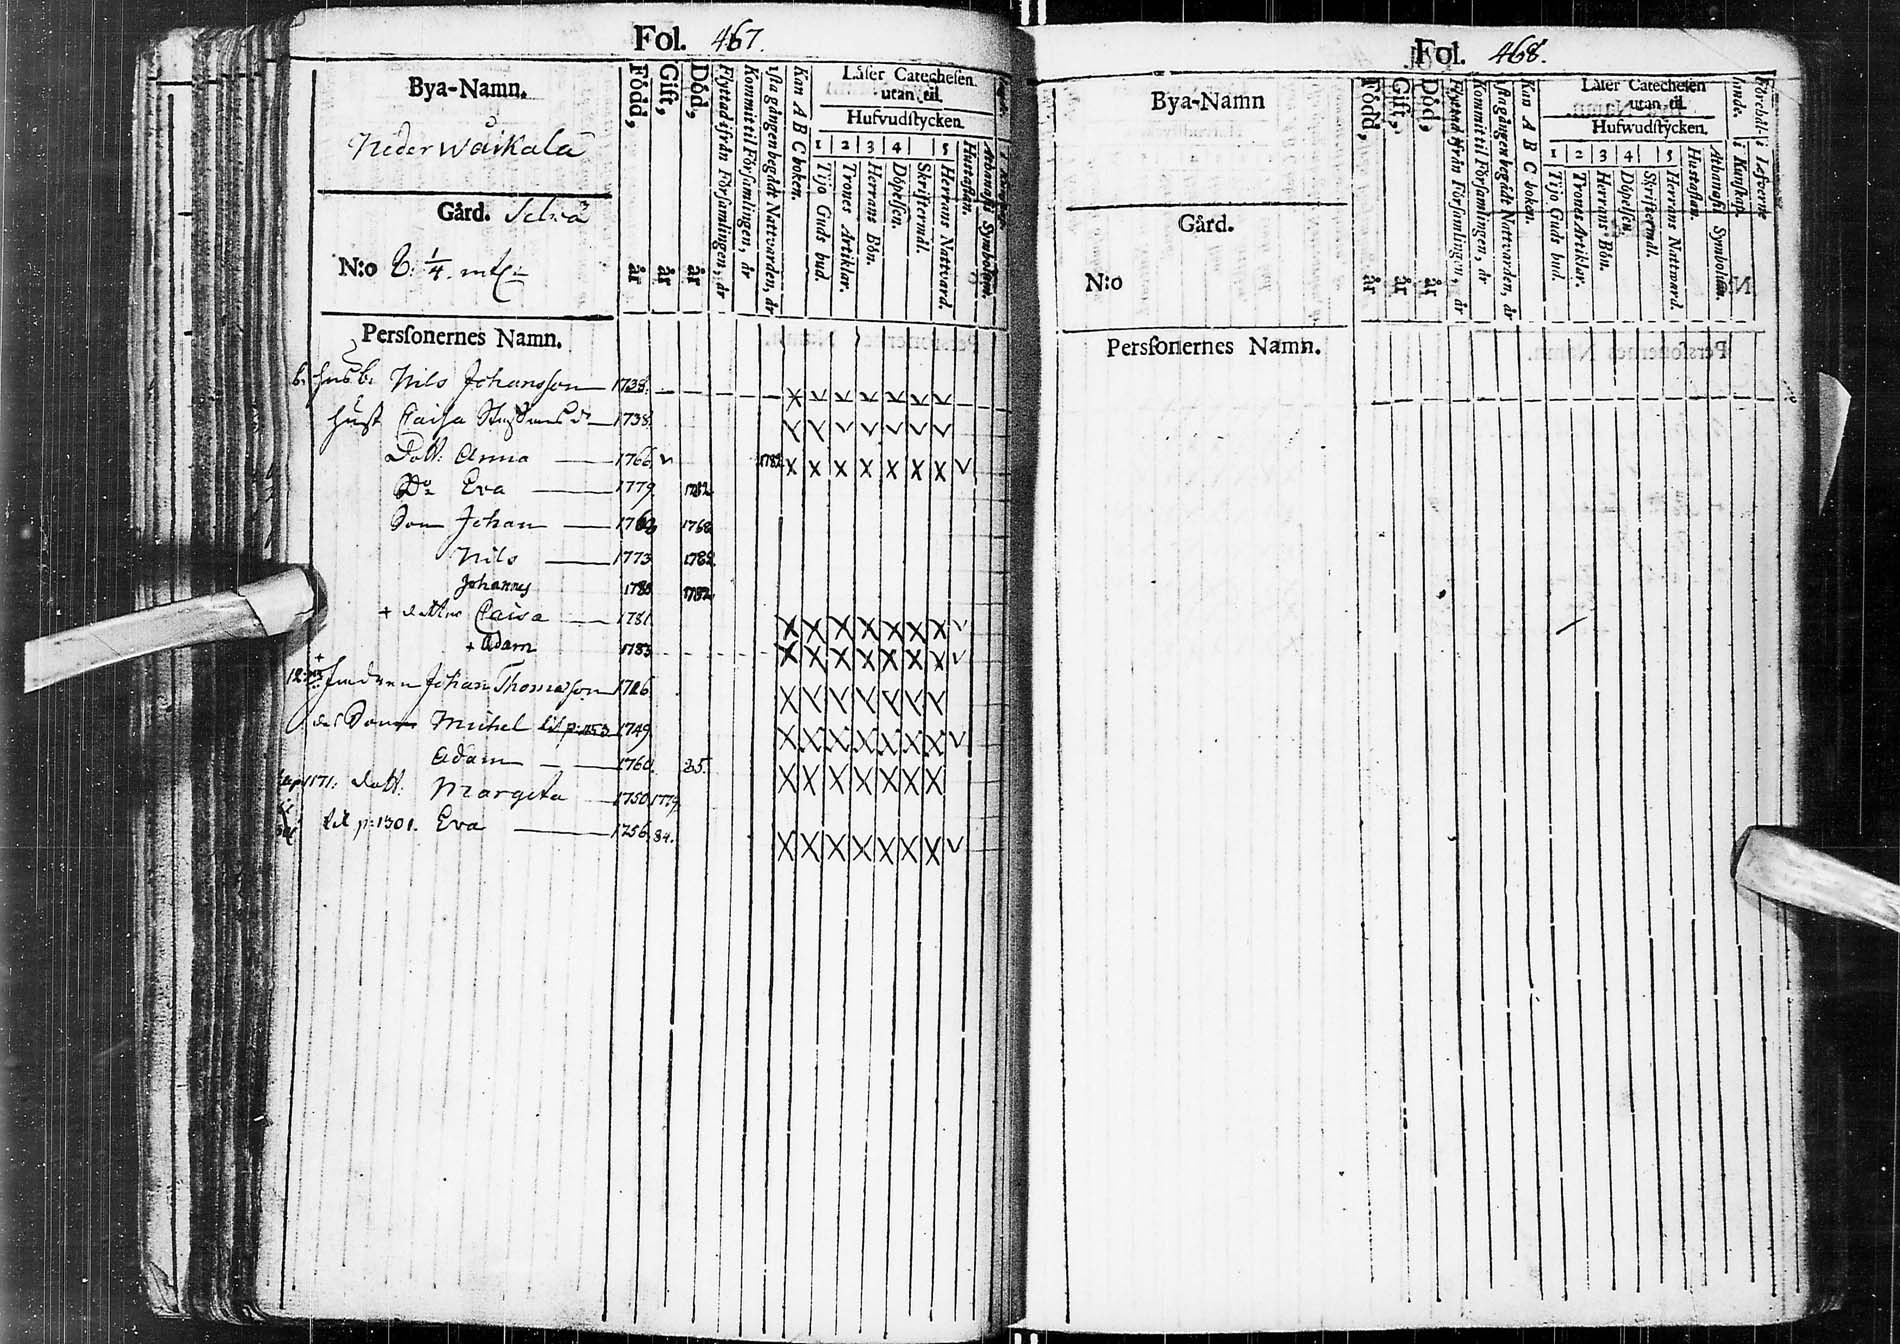 Fol. 467.
Bya-Namn.
Neder Waikala
Gård.
N:o 8. 1/4. mtl
Född, år
Gift, år
Död, år
Flyttad ifrån Församlingen, år
Kommit til Församlingen, år
1sta gången begådt Nattvarden, år
Kan A B C boken.
Låſer Catecheſen
utan til.
Hufvudſtycken.
1 2 3 4 5
Tijo Guds bud.
Trones Artiklar.
Herrans Bön.
Döpelſen.
Skriftermål.
Herrans Nattvard.
Huſtaflan.
Athanaſii Symbolum.
Perſonernes Namn.
husb. Nils Johansson 1738.
hust Caisa 1738.
Dott: Anna 1766 1782
Do Eva 1779 1782
Son Johan 1768
Nils 1773 1782
Johannes 1782
+ Caisa 1781
+ Adam 1783
Johan Thomasson 1726
Michel 1749
Adam 1760. 85.
Dott: Margeta 1750 1779
til p: 1301. Eva 1756 84.
Fol. 468.
Bya-Namn
Gård.
N:o
Född, år
Gift, år
Död, år
Flyttad ifrån Församlingen, år
Kommit til Församlingen, år
1sta gången begådt Nattvarden, år
Kan A B C boken.
Låſer Catecheſen
utan til.
Hufwudſtycken.
1 2 3 4 5
Tijo Guds bud.
Trones Artiklar.
Herrans Bön.
Döpelſen.
Skriftermål.
Herrans Nattward.
Huſtaflan.
Athanaſii Symbolum.
Perſonernes Namn.